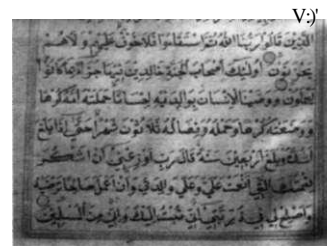 V:)'
الذين قالوا ربنا الله ثم استقاموا فلا خوف عليهم ولا هم
يحزنون اولئك اصحاب الجنة خالدين فيها جزاء بما كانوا
يعملون ووصينا الانسان بوالديه احسانا حملته امه كرها
ووضعته كرها وحمله وفصاله ثلاثون شهرا حتى اذا بلغ
اشده وبلغ اربعين سنة قال رب اوزعني ان اشكر
نعمتك التي انعمت علي وعلى والدي وان اعمل صالحا ترضيه
واصلح لي في ذريتي اني تبت اليك واني من المسلمين